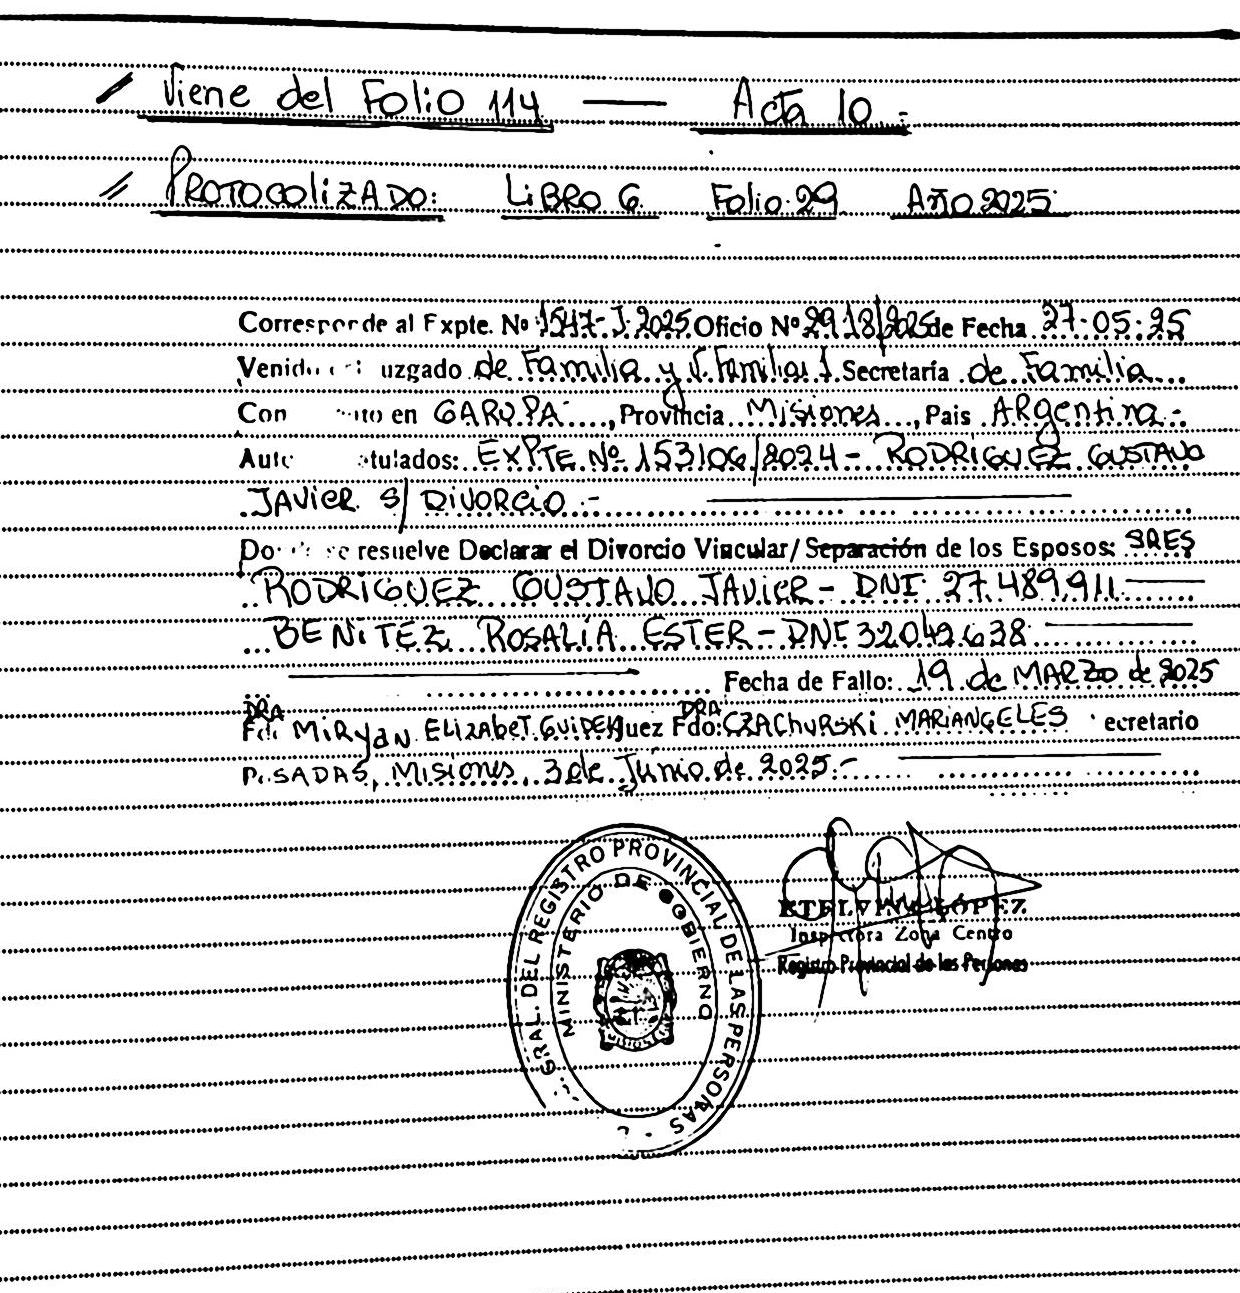 Viene del Folio 114 — Acta 10.-
PROTOCOLIZADO: LIBRO 6 Folio 29 Año 2025
Corresponde al Expte. Nº 1547-J-2025 Oficio Nº 2918/2025 de Fecha 27-05-25
uzgado de Familia y V. Familiar 1 Secretaría de Familia
Con en GARUPA, Provincia Misiones, Pais ARgentina.-
Aut tulados: EXPTE. Nº 153106/2024 - RODRIGUEZ GUSTAVO
JAVIER S/ DIVORCIO.-
se resuelve Declarar el Divorcio Vincular/Separación de los Esposos: SRES
RODRIGUEZ GUSTAVO JAVIER - DNI 27.489.911
BENITEZ ROSALIA ESTER - DNI 32.042.638
Fecha de Fallo: 19 de MARZO de 2025
DRA DRA
MiRyAN ELIZAbeT. uez Fdo: CZAChURSKi MARIANGELES ecretario
POSADAS, Misiones, 3 de Junio de 2025.-
GRAL. DEL REGISTRO PROVINCIAL DE LAS PERSONAS
MINISTERIO DE GOBIERNO
ETELVINA LÓPEZ
Inspectora Zona Centro
Registro Provincial de las Personas